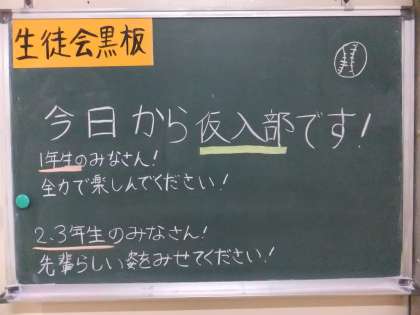 生徒会黒板
今日から仮入部です!
1年生のみなさん!
全力で楽しんでください!
2、3年生のみなさん!
先輩らしい姿をみせてください!